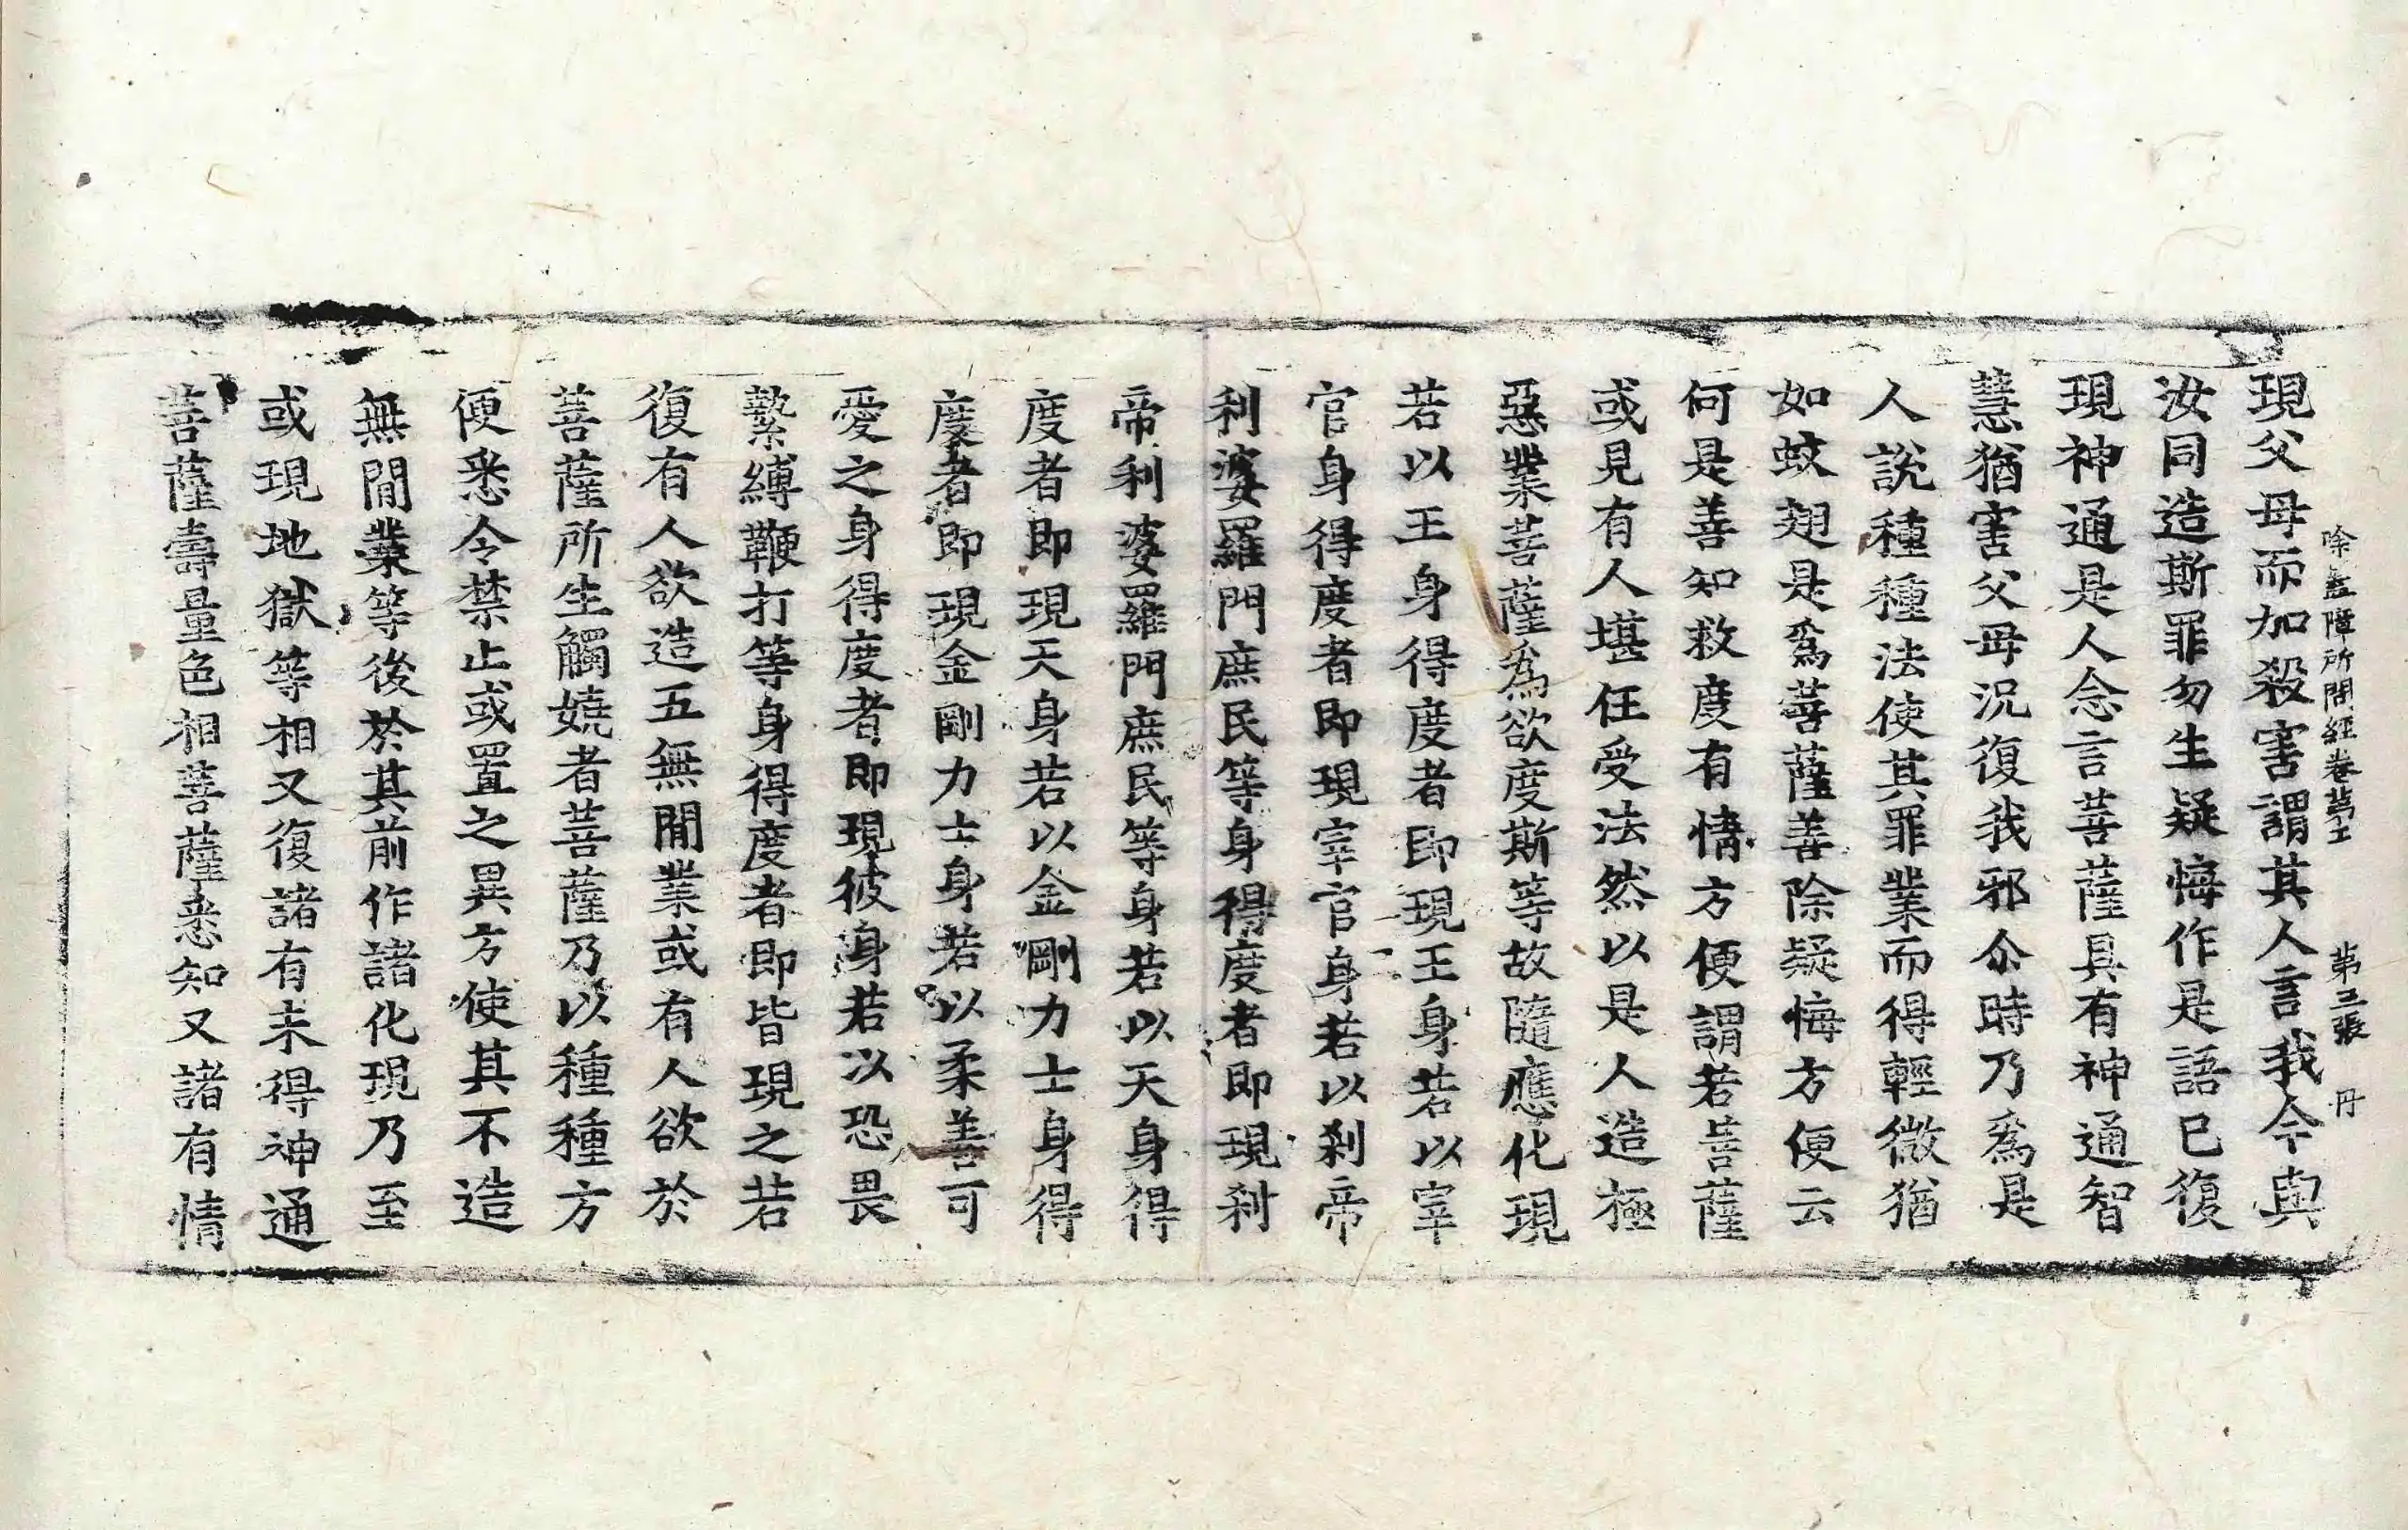 除蓋障所問經卷第五　第三張　丹
現父母而加殺害謂其人言我今與
汝同造斯罪勿生疑悔作是語已復
現神通是人念言菩薩具有神通智
慧猶害父母況復我邪尒時乃爲是
人說種種法使其罪業而得輕微猶
如蚊翅是爲菩薩善除疑悔方便云
何是善知救度有情方便謂若菩薩
或見有人堪任受法然以是人造極
惡業菩薩爲欲度斯等故隨應化現
若以王身得度者即現王身若以宰
官身得度者即現宰官身若以刹帝
利婆羅門庶民等身得度者即現刹
帝利婆羅門庶民等身若以天身得
度者即現天身若以金剛力士身得
度者即現金剛力士身若以柔善可
愛之身得度者即現彼身若以恐畏
繫縛鞭打等身得度者即皆現之若
復有人欲造五無間業或有人欲於
菩薩所生觸嬈者菩薩乃以種種方
便悉令禁止或置之異方使其不造
無間業等後於其前作諸化現乃至
或現地獄等相又復諸有未得神通
菩薩壽量色相菩薩悉知又諸有情